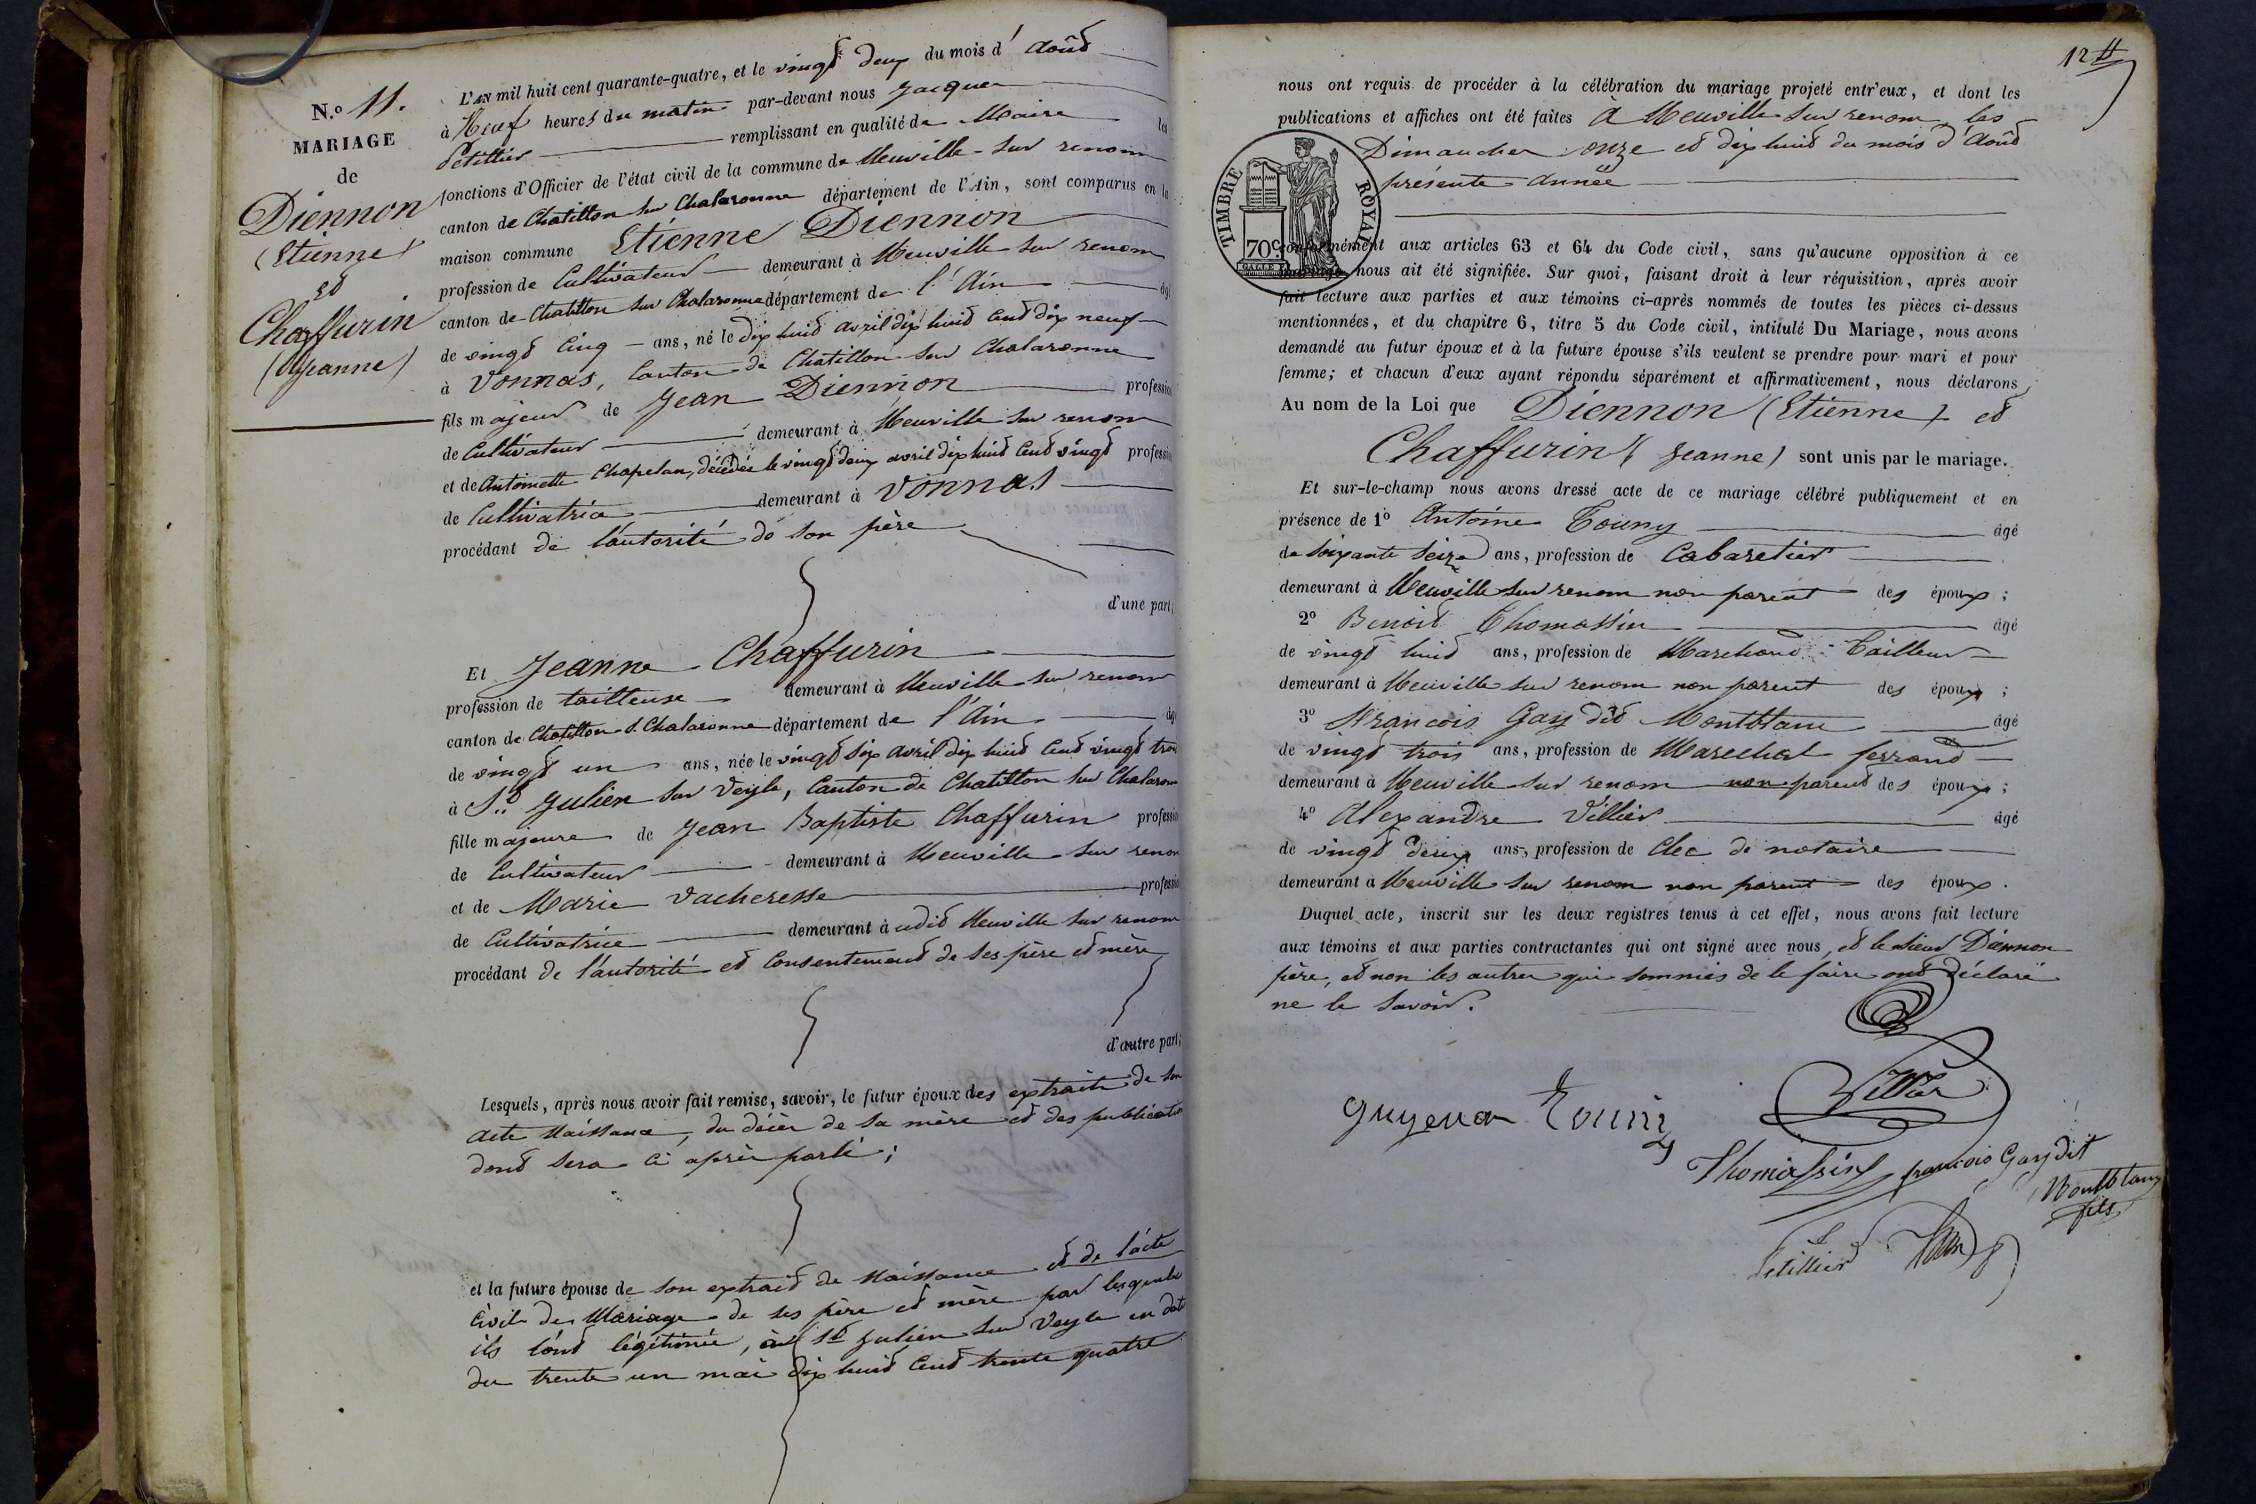 N.º 11.
MARIAGE
de
Diennon
(Etienne)
et
Chaffurin
(Jeanne)
L'AN mil huit cent quarante-quatre, et le vingt deux du mois d'Août
à Neuf heures du matin par-devant nous Jacques
Petillier remplissant en qualité de Maire les
fonctions d'Officier de l'état civil de la commune de Neuville-sur renom
canton de Chatillon sur Chalaronne département de l'Ain, sont comparus en la
maison commune Etienne Diennon
profession de Cultivateur demeurant à Neuville sur renom
canton de Chatillon sur Chalaronne département de l'Ain âgé
de vingt cinq ans, né le dix huit avril dix huit cent dix neuf
à Vonnas, Canton de Chatillon sur Chalaronne
fils majeur de Jean Diennon profession
de Cultivateur demeurant à Neuville sur renom
et de Antoinette Chapelan, décédée le vingt deux avril dix huit cent vingt profession
de Cultivatrice demeurant à Vonnas
procédant de l'autorité de son père
d'une part;
Et Jeanne Chaffurin
profession de tailleuse demeurant à Neuville sur renom
canton de Chatillon s. Chalaronne département de l'Ain âgé
de vingt un ans, née le vingt six avril dix huit cent vingt trois
à St. Julien sur Veyle, Canton de Chatillon sur Chalaronne
fille majeure de Jean Baptiste Chaffurin profession
de Cultivateur demeurant à Neuville sur renom
et de Marie Vacheresse profession
de Cultivatrice demeurant à udit Neuville sur renom
procédant de l'autorité et Consentement de ses père et mère
d'autre part;
Lesquels, après nous avoir fait remise, savoir, le futur époux des extraits de son
acte Naissance, du décès de sa mère et des publications
dont sera ci après parlé;
et la future épouse de son extrait de Naissance et de l'acte
Civil de Mariage de ses père et mère par lesquels
ils l'ont légitimée, à St Julien sur Veyle en date
du trente un mai dix huit cent trente quatre
12
nous ont requis de procéder à la célébration du mariage projeté entr'eux, et dont les
publications et affiches ont été faites à Neuville sur renom les
Dimanches onze et dix huit du mois d'Août
présente année
TIMBRE ROYAL
70 c.
conformément aux articles 63 et 64 du Code civil, sans qu'aucune opposition à ce
mariage nous ait été signifiée. Sur quoi, faisant droit à leur réquisition, après avoir
fait lecture aux parties et aux témoins ci-après nommés de toutes les pièces ci-dessus
mentionnées, et du chapitre 6, titre 5 du Code civil, intitulé Du Mariage, nous avons
demandé au futur époux et à la future épouse s'ils veulent se prendre pour mari et pour
femme; et chacun d'eux ayant répondu séparément et affirmativement, nous déclarons
Au nom de la Loi que Diennon (Etienne) et
Chaffurin (Jeanne) sont unis par le mariage.
Et sur-le-champ nous avons dressé acte de ce mariage célébré publiquement et en
présence de 1º Antoine Touny âgé
de soixante seize ans, profession de Cabaretier
demeurant à Neuville sur renom non parent des époux;
2º Benoit Thomassin âgé
de vingt huit ans, profession de Marchand-Tailleur
demeurant à Neuville sur renom non parent des époux;
3º François Gay dit Montblanc âgé
de vingt trois ans, profession de Marechal ferrand
demeurant à Neuville sur renom non parent des époux;
4º Alexandre Villier âgé
de vingt deux ans, profession de Clec de notaire
demeurant à Neuville sur renom non parent des époux.
Duquel acte, inscrit sur les deux registres tenus à cet effet, nous avons fait lecture
aux témoins et aux parties contractantes qui ont signé avec nous, et le sieur Diennon
père, et non les autres qui sommés de le faire ont déclaré
ne le savoir.
Villier
guyenon Touniy
Thomassin françois Gay dit
Montblanc
fils
Petillier